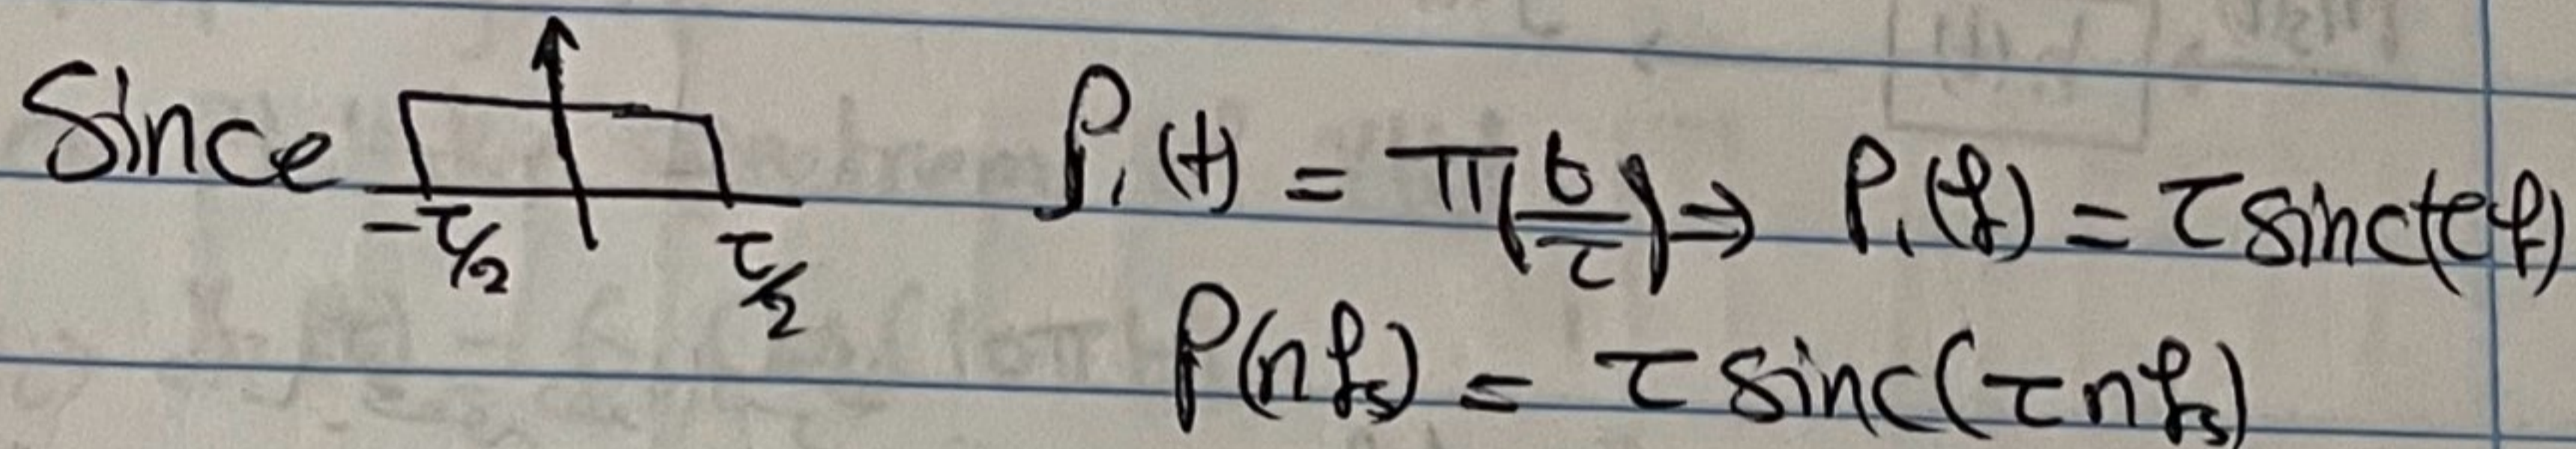 Since -τ/2 τ/2 P₁(t) = π(t/τ) ⇒ P₁(f) = τ sinc(τf)
P(nfs) = τ sinc(τnfs)